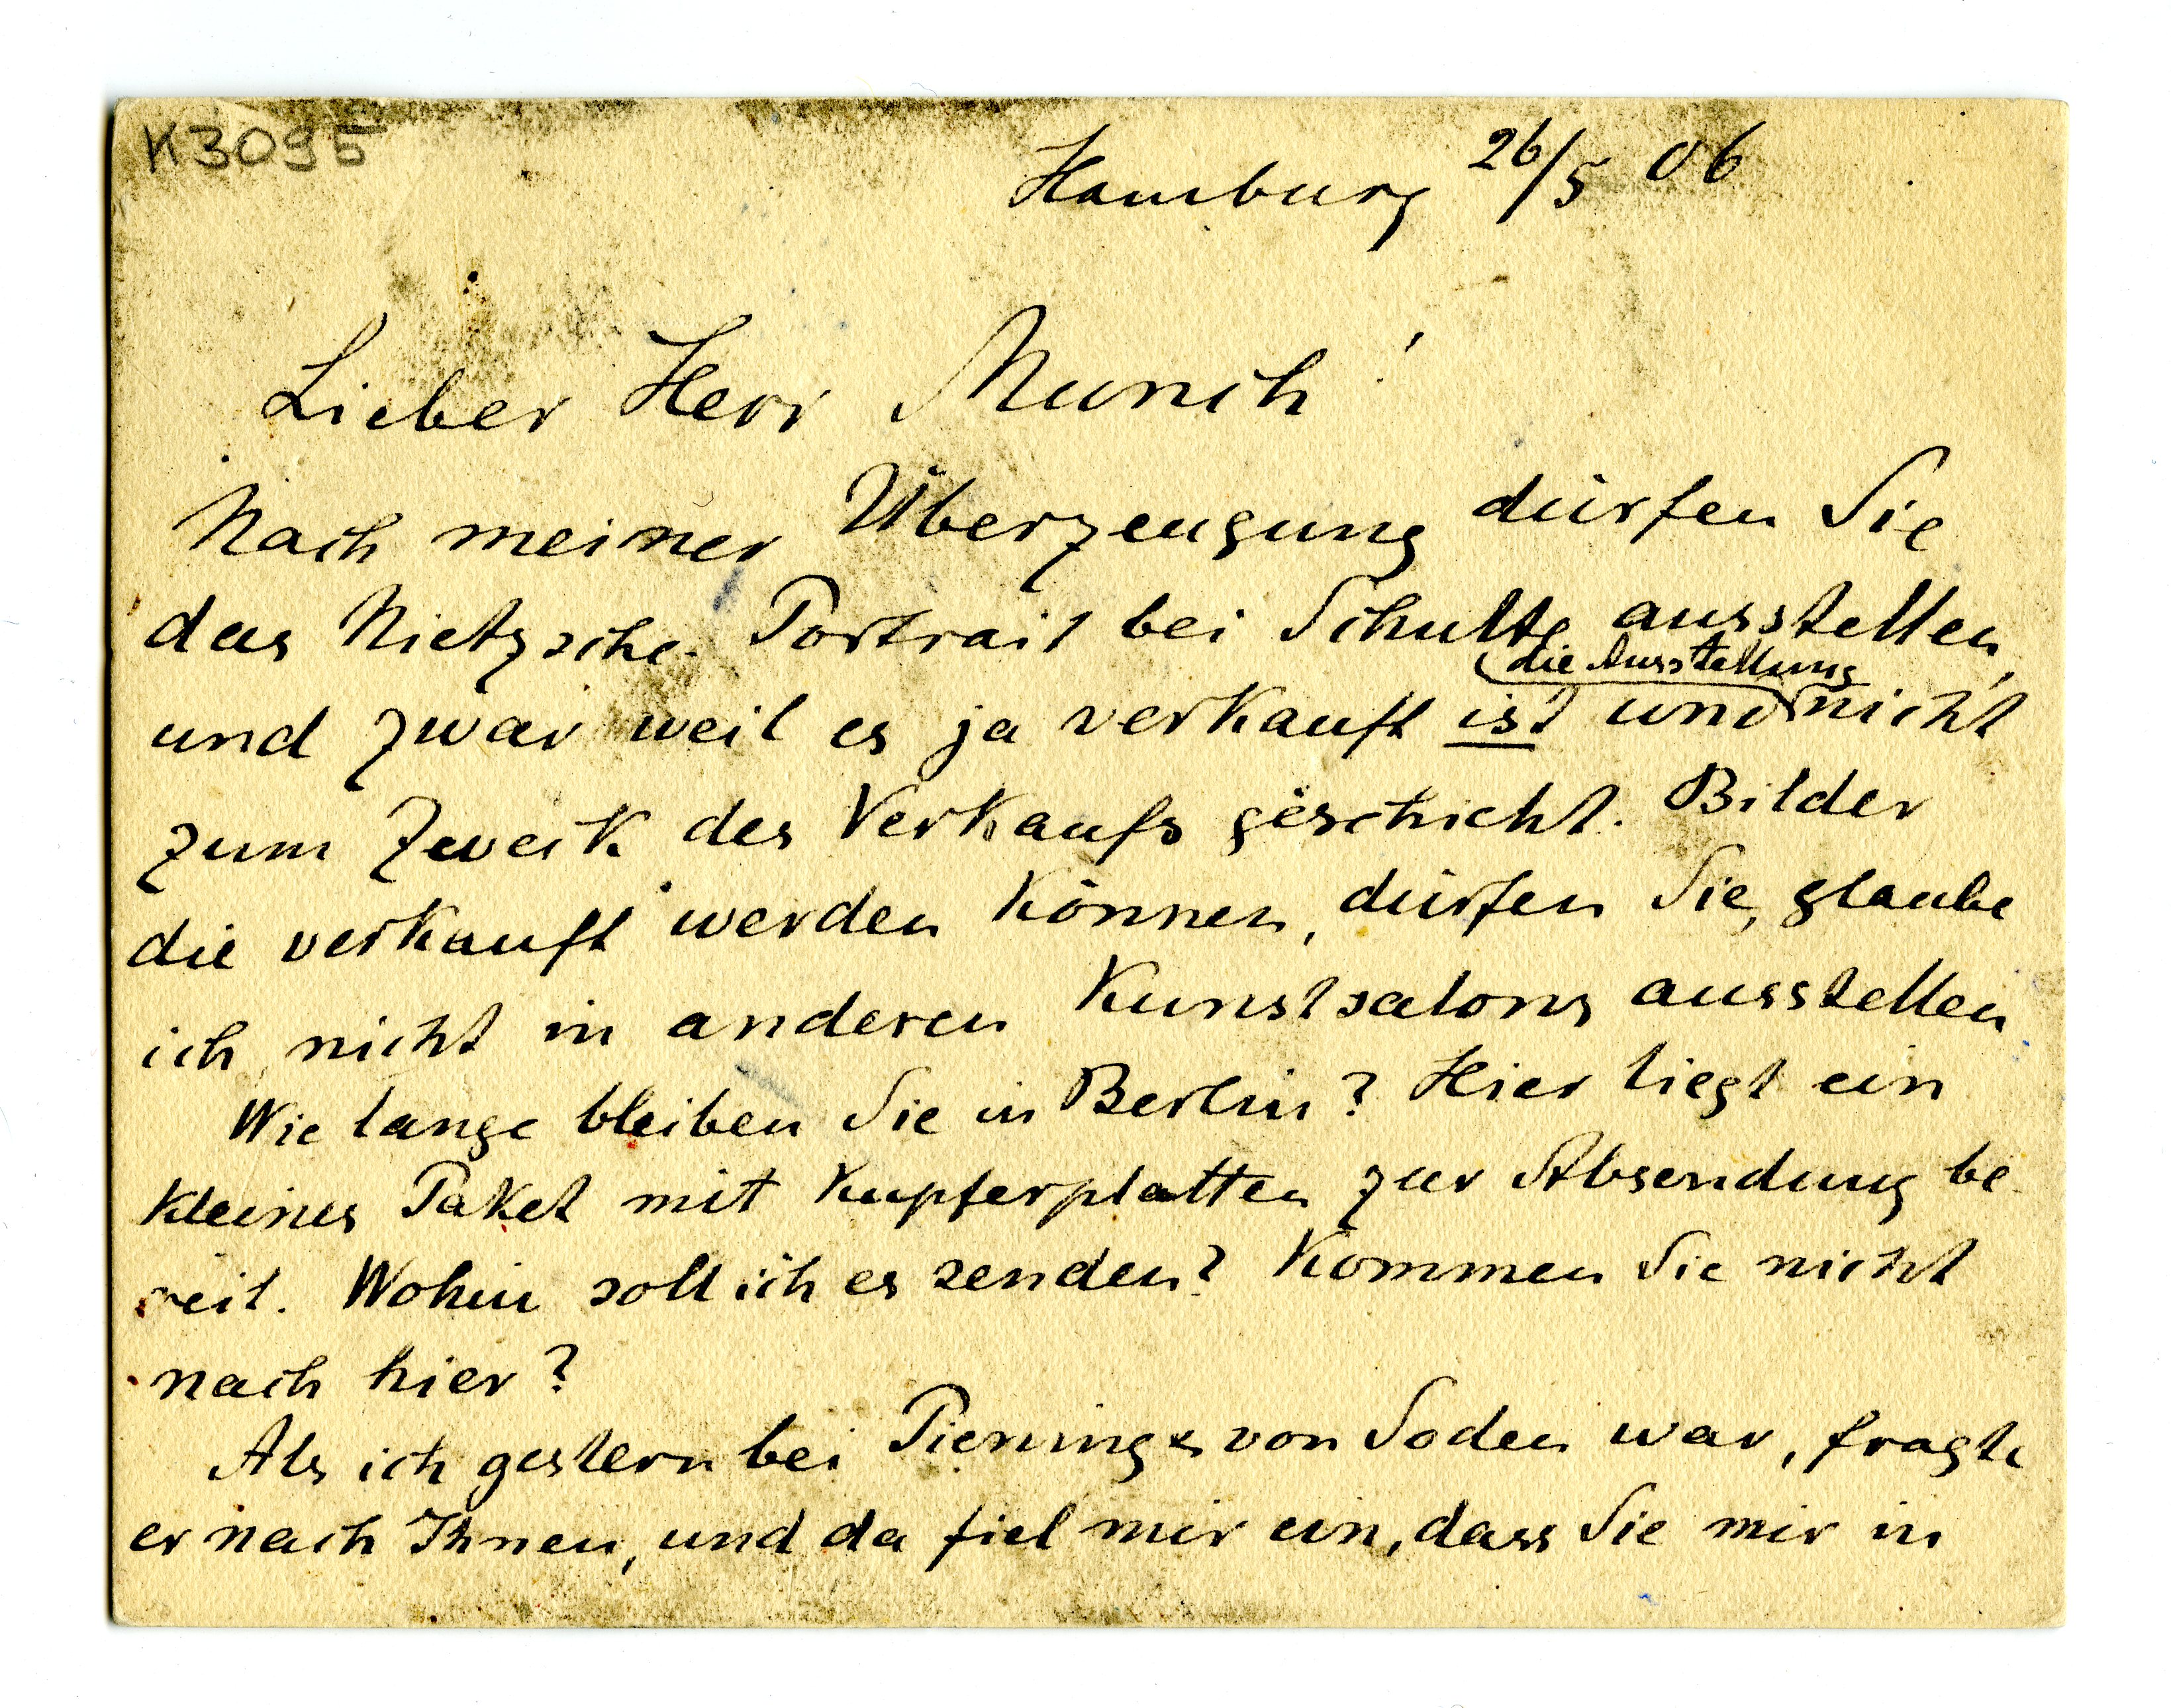 K3095
Hamburg 26/5 06
Lieber Herr Munch!
Nach meiner Überzeugung dürfen Sie
das Nietzsche-Portrait bei Schulte ausstellen,
die Ausstellung
und zwar weil es ja verkauft ist und nicht
zum Zweck des Verkaufs geschieht. Bilder
die verkauft werden können, dürfen Sie, glaube
ich, nicht in anderen Kunstsalons ausstellen
Wie lange bleiben Sie in Berlin? Hier liegt ein
kleines Paket mit Kupferplatten zur Absendung be-
reit. Wohin soll ich es senden? Kommen Sie nicht
nach hier?
Als ich gestern bei Piening & von Soden war, fragte
er nach Ihnen, und da fiel mir ein, dass Sie mir in